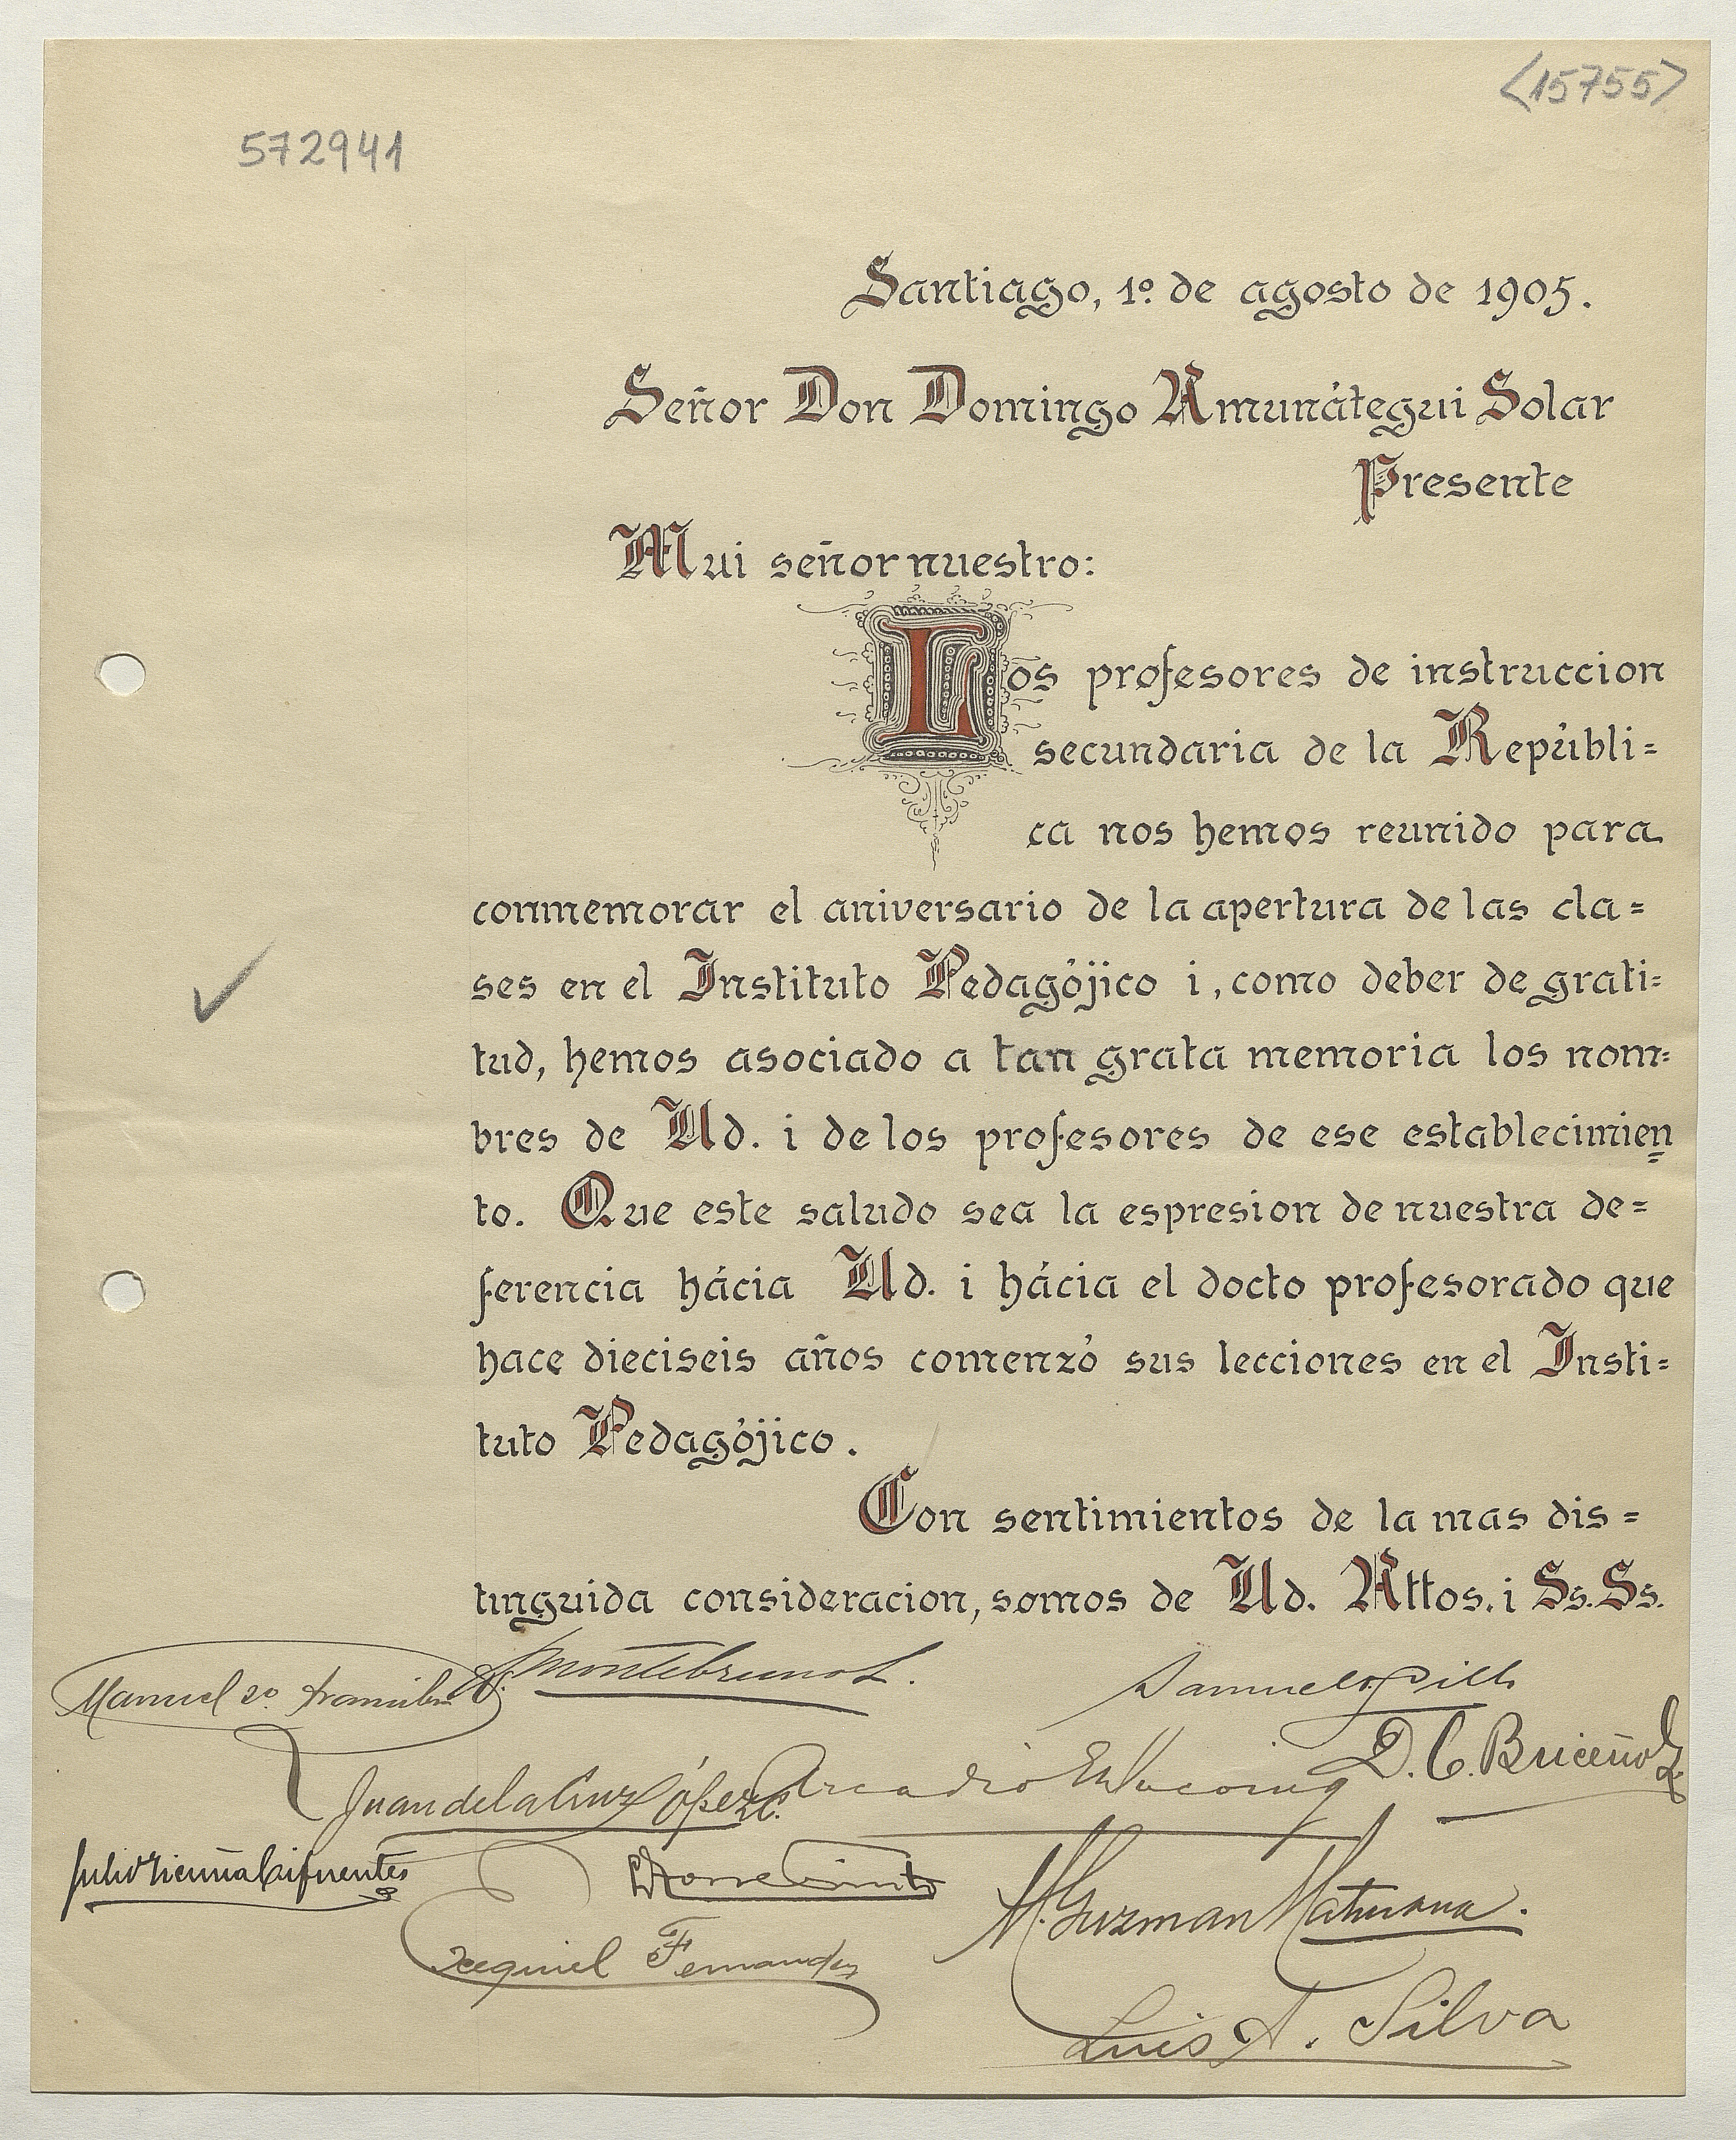 <15755>
572941
Santiago, 1º de agosto de 1905.
Señor Don Domingo Amunátegui Solar
Presente
Mui señor nuestro:
Los profesores de instruccion
secundaria de la Repúbli=
ca nos hemos reunido para
conmemorar el aniversario de la apertura de las cla=
ses en el Instituto Pedagójico i, como deber de grati=
tud, hemos asociado a tan grata memoria los nom=
bres de Ud. i de los profesores de ese establecimien=
to. Que este saludo sea la espresion de nuestra de=
ferencia hácia Ud. i hácia el docto profesorado que
hace dieciseis años comenzó sus lecciones en el Insti=
tuto Pedagójico.
Con sentimientos de la mas dis=
tinguida consideracion, somos de Ud. Attos. i Ss. Ss.
Manuel 2º
Montebruno L.
Samuel
D. C. Briceño
Juan de la Cruz López C.
Arcadio
Julio Vicuña Cifuentes
M. Guzman Maturana.
Exequiel Fernandez
Luis A. Silva